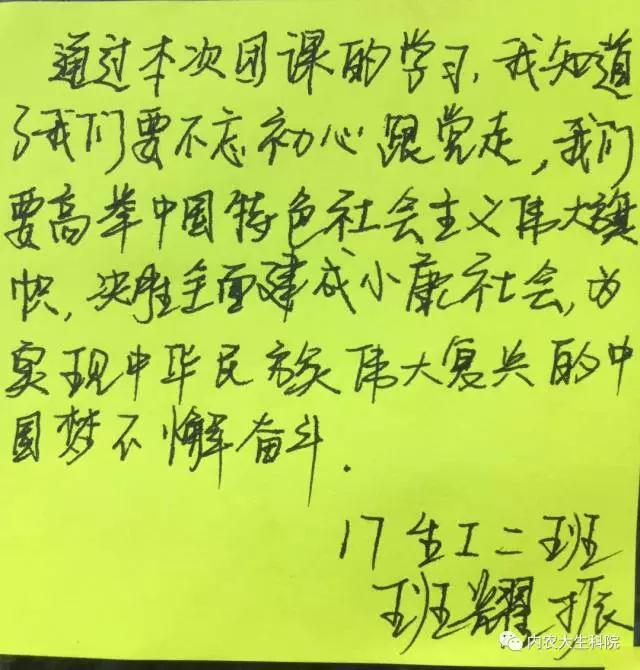 通过本次团课的学习,我知道
了我们要不忘初心跟党走,我们
要高举中国特色社会主义伟大旗
帜,决胜全面建成小康社会,为
实现中华民族伟大复兴的中
国梦不懈奋斗.
17生工二班
班耀振
内农大生科院